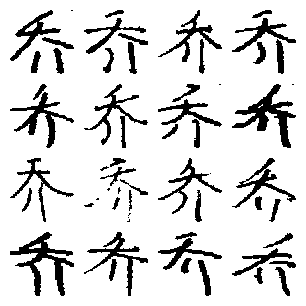 乔乔乔乔
乔乔乔乔
乔乔乔乔
乔乔乔乔